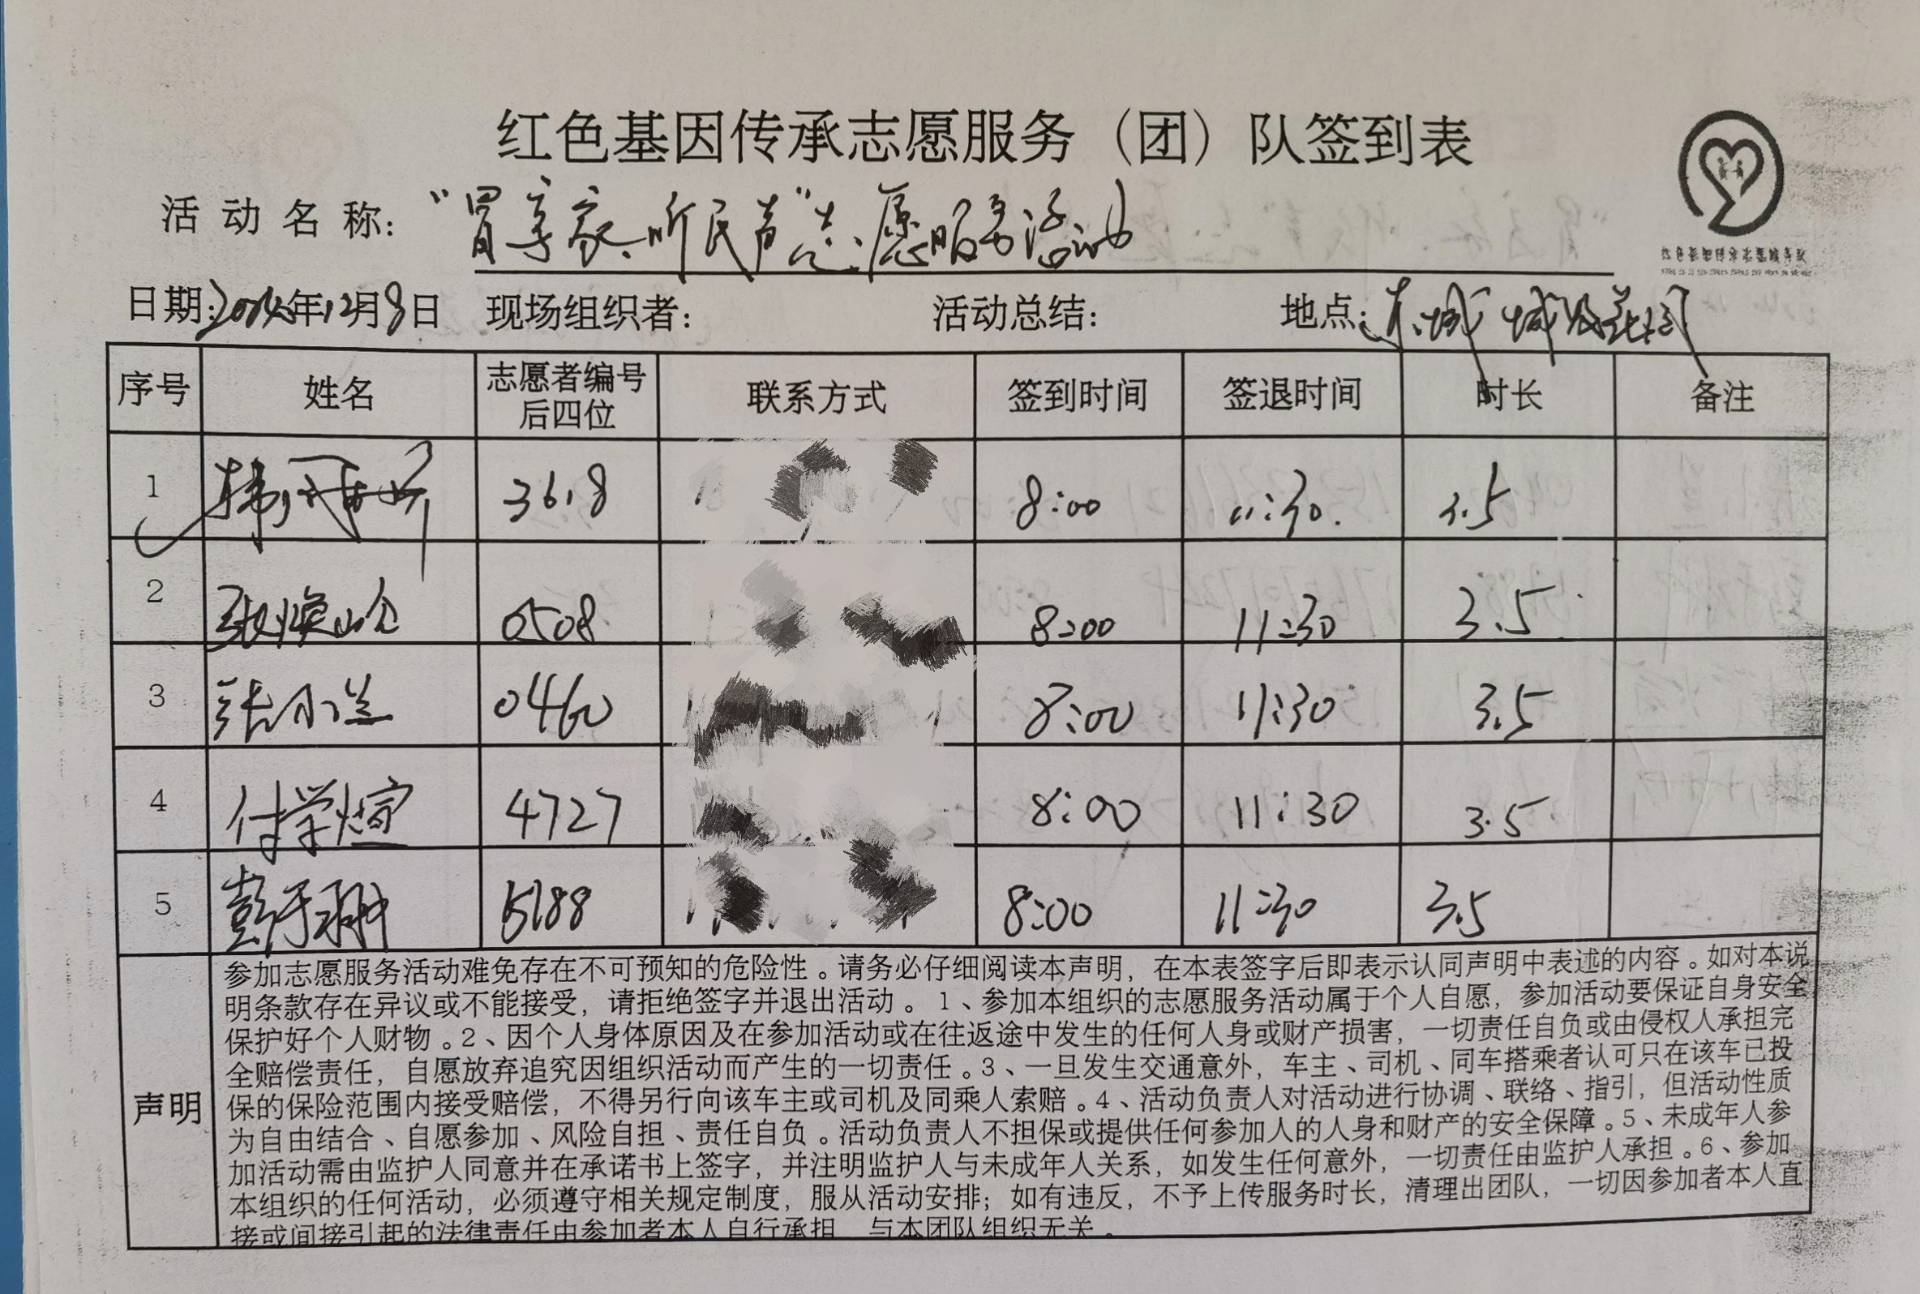 红色基因传承志愿服务（团）队签到表
活动名称：“胃享家、听民声”志愿服务活动
日期：年12月8日 现场组织者： 活动总结： 地点：东城
序号 姓名 志愿者编号后四位 联系方式 签到时间 签退时间 时长 备注
1 3618 8:00 11:30 3.5
2 0508 8:00 11:30 3.5
3 张小兰 0460 8:00 11:30 3.5
4 付学煊 4727 8:00 11:30 3.5
5 彭于珊 5188 8:00 11:30 3.5
声明
参加志愿服务活动难免存在不可预知的危险性。请务必仔细阅读本声明，在本表签字后即表示认同声明中表述的内容。如对本说
明条款存在异议或不能接受，请拒绝签字并退出活动。1、参加本组织的志愿服务活动属于个人自愿，参加活动要保证自身安全
保护好个人财物。2、因个人身体原因及在参加活动或在往返途中发生的任何人身或财产损害，一切责任自负或由侵权人承担完
全赔偿责任，自愿放弃追究因组织活动而产生的一切责任。3、一旦发生交通意外，车主、司机、同车搭乘者认可只在该车已投
保的保险范围内接受赔偿，不得另行向该车主或司机及同乘人索赔。4、活动负责人对活动进行协调、联络、指引，但活动性质
为自由结合、自愿参加、风险自担、责任自负。活动负责人不担保或提供任何参加人的人身和财产的安全保障。5、未成年人参
加活动需由监护人同意并在承诺书上签字，并注明监护人与未成年人关系，如发生任何意外，一切责任由监护人承担。6、参加
本组织的任何活动，必须遵守相关规定制度，服从活动安排；如有违反，不予上传服务时长，清理出团队，一切因参加者本人直
接或间接引起的法律责任由参加者本人自行承担，与本团队组织无关。